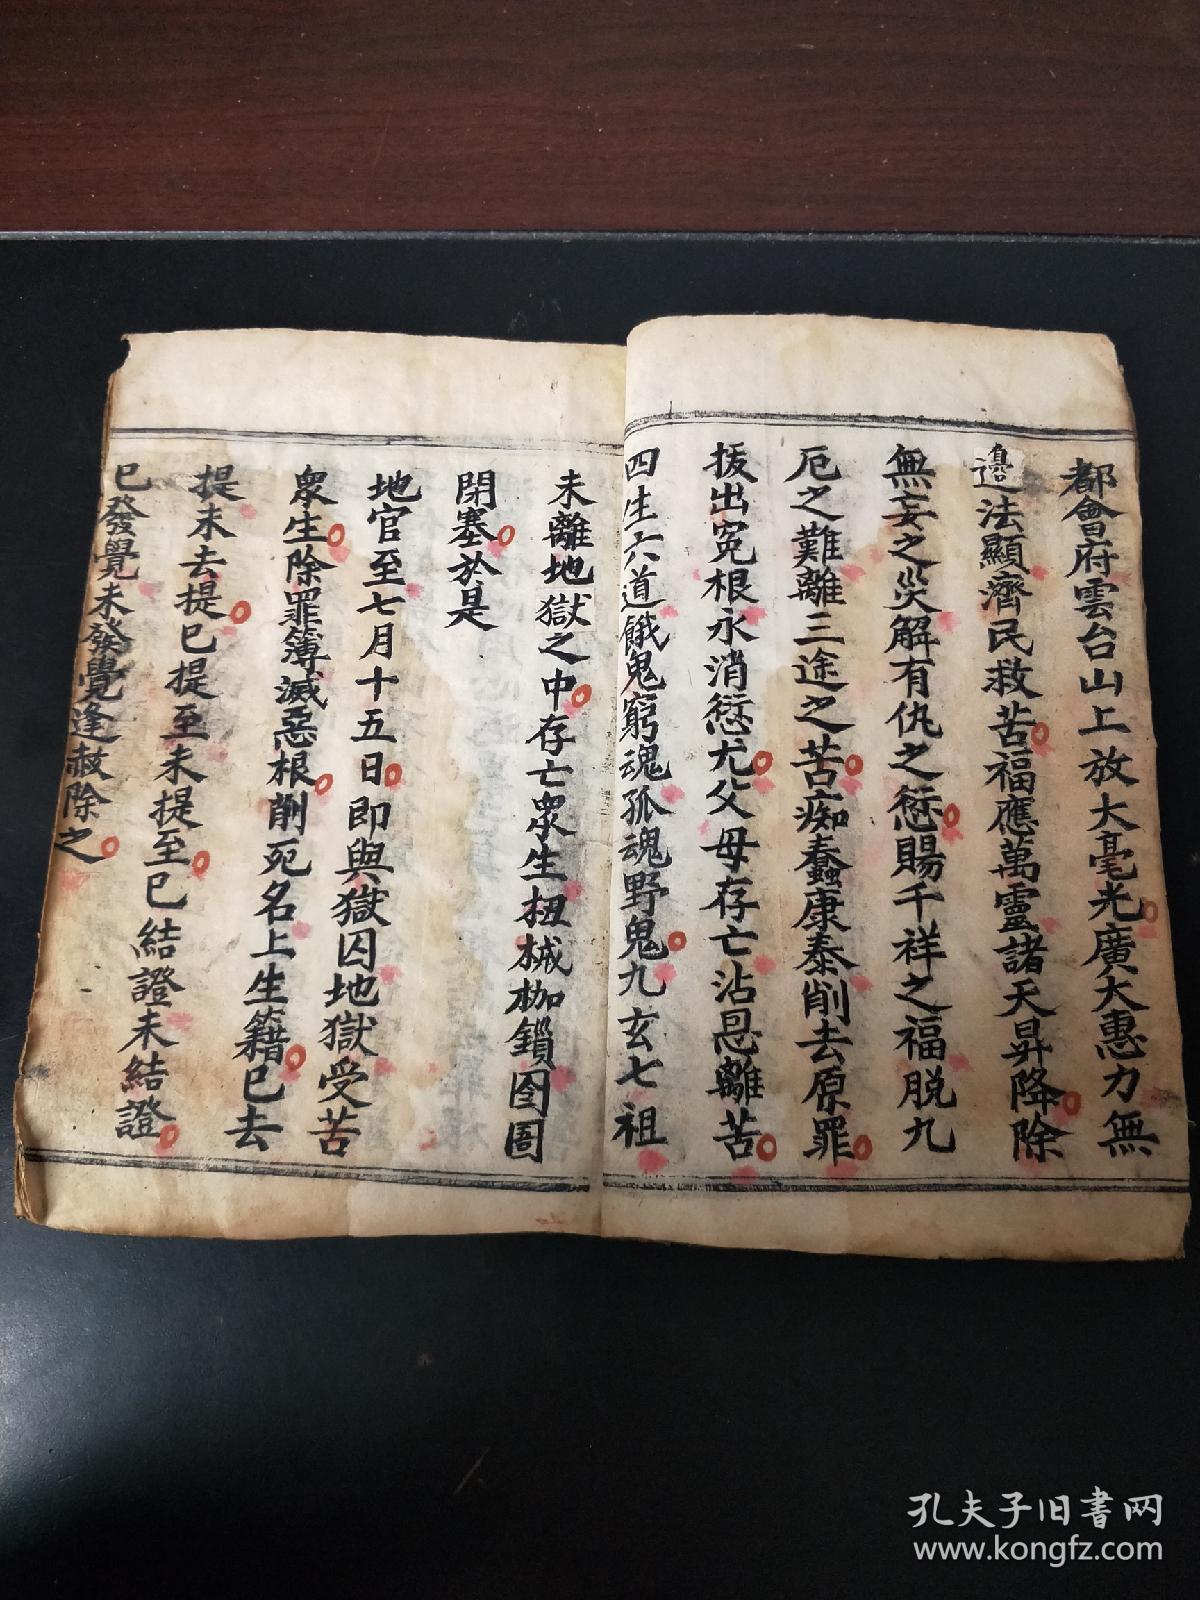 都會府雲台山上放大毫光廣大惠力無
邊法顯濟民救苦福應萬靈諸天昇降除
無妄之災解有仇之愆賜千祥之福脱九
厄之難離三途之苦痴蠢康泰削去原罪
拔出冤根永消愆尤父母存亡沾恩離苦
四生六道餓鬼窮魂孤魂野鬼九玄七祖
未離地獄之中存亡衆生扭械枷鎖囹圄
閉塞於是
地官至七月十五日即與獄囚地獄受苦
衆生除罪簿滅惡根削死名上生籍已去
提未去提已提至未提至已結證未結證
已發覺未發覺逢赦除之
孔夫子旧书网
www.kongfz.com